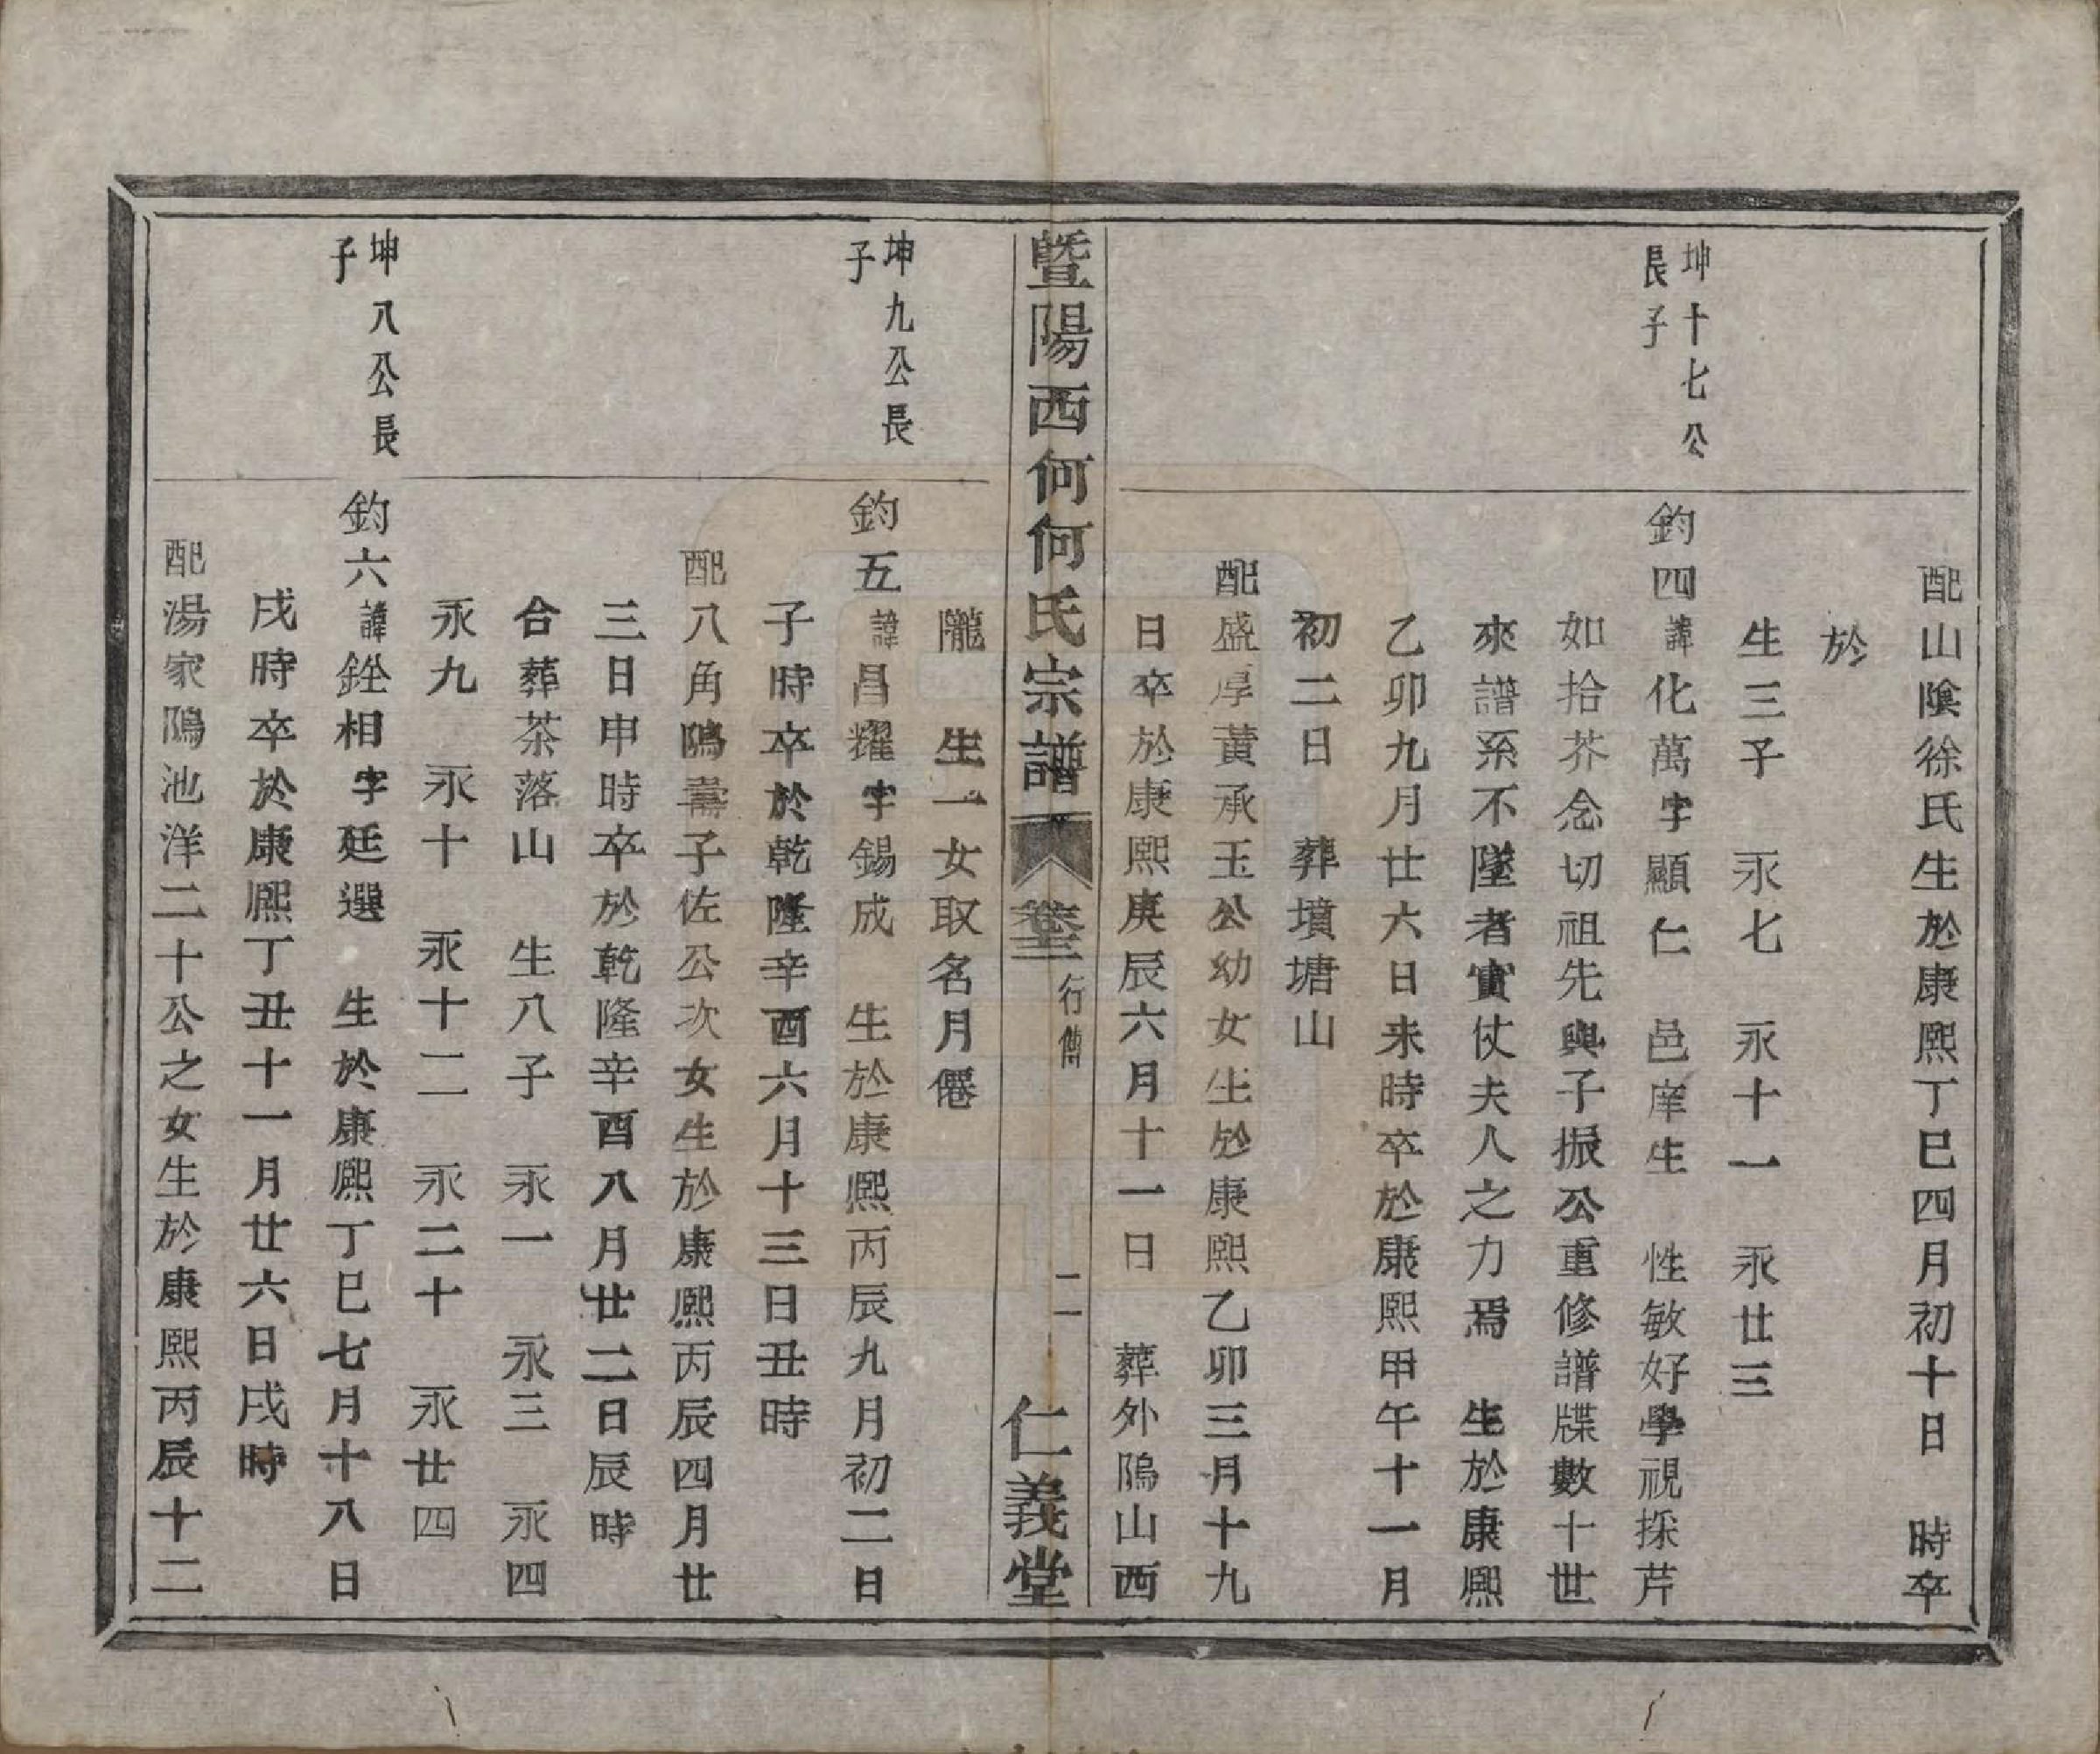 配山陰徐氏生於康熙丁巳四月初十日 時卒
於
生三子 永七 永十一 永廿三
坤十七公長子
鈞四諱化萬字顯仁 邑庠生 性敏好學視採芹
如拾芥念切祖先與子振公重修譜牒數十世
來譜系不墜者實仗夫人之力焉 生於康熙
乙卯九月廿六日未時卒於康熙甲午十一月
初二日 葬墳塘山
配盛厚黃承玉公幼女生於康熙乙卯三月十九
日卒於康熙庚辰六月十一日 葬外隖山西
暨陽西何何氏宗譜 卷三 行傳 二 仁義堂
隴 生一女取名月僊
坤九公長子
鈞五諱昌耀字錫成 生於康熙丙辰九月初二日
子時卒於乾隆辛酉六月十三日丑時
配八角隖壽子佐公次女生於康熙丙辰四月廿
三日申時卒於乾隆辛酉八月廿二日辰時
合葬茶落山 生八子 永一 永三 永四
永九 永十 永十二 永二十 永廿四
坤八公長子
鈞六諱銓相字廷選 生於康熙丁巳七月十八日
戌時卒於康熙丁丑十一月廿六日戌時
配湯家隖池洋二十公之女生於康熙丙辰十二